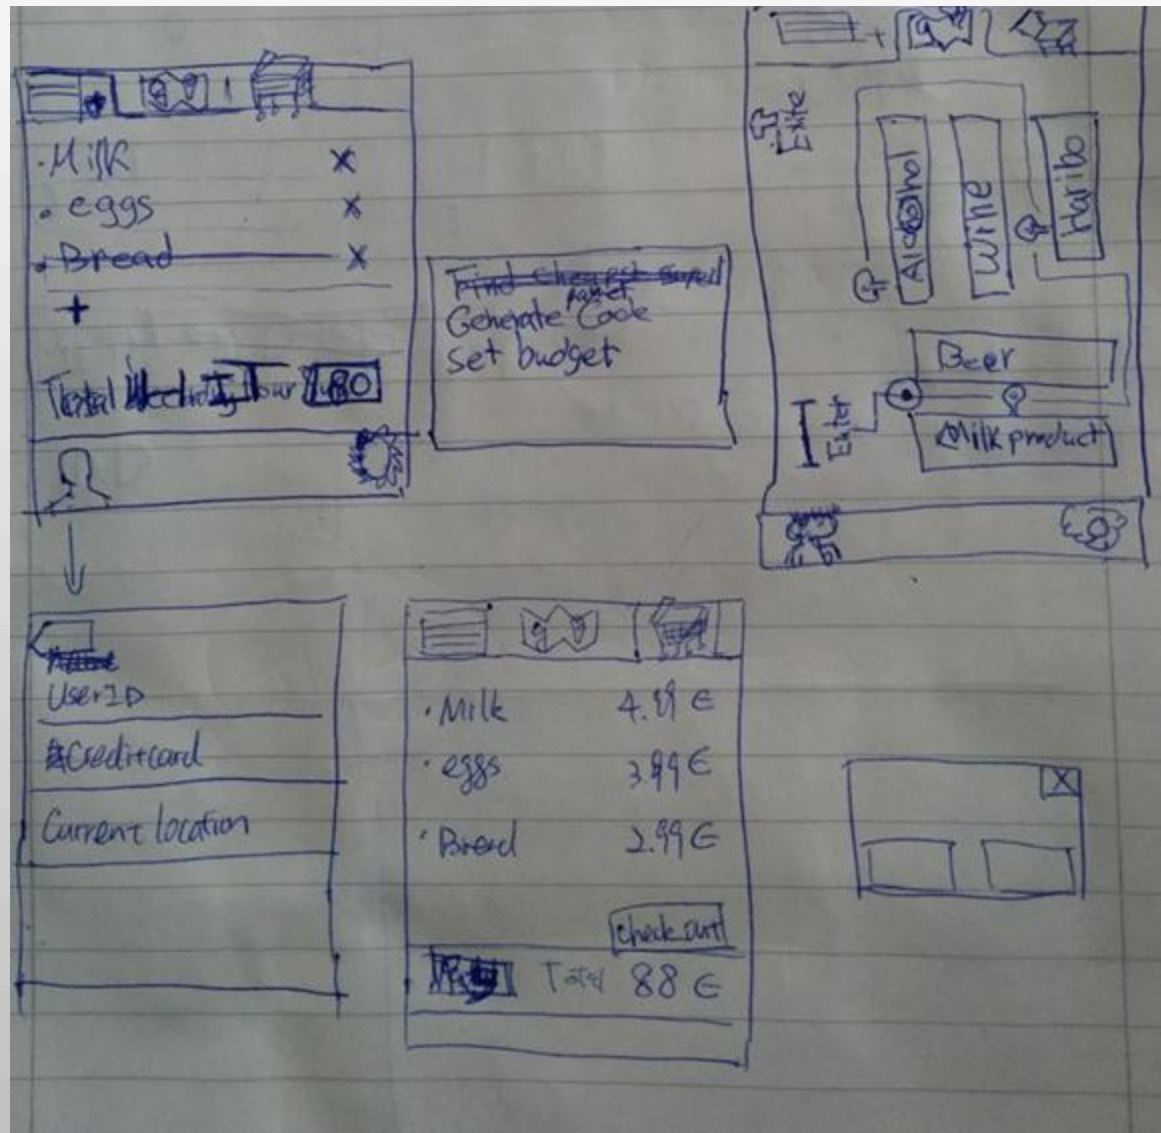 ·Milk X
· eggs X
· Bread X
+
Total 80
Generate Code
Set budget
+
Exite
Alcohol
Wine
Haribo
Beer
Enter
Milk product
UserID
Creditcard
Current location
· Milk 4.99 €
· eggs 3.99 €
· Bread 2.99 €
check out
Total 88 €
X